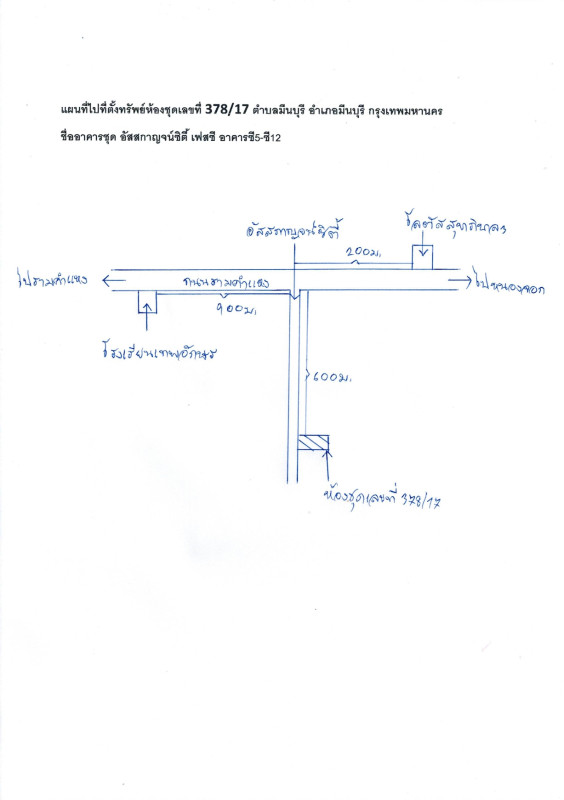 แผนที่ไปที่ตั้งทรัพย์ห้องชุดเลขที่ 378/17 ตำบลมีนบุรี อำเภอมีนบุรี กรุงเทพมหานคร
ชื่ออาคารชุด อัสสกาญจน์ซิตี้ เฟสซี อาคารซี5-ซี12
อัสสกาญจน์ซิตี้
โลตัสสุขาภิบาล3
200ม.
ไปรามคำแหง
ถนนรามคำแหง
ไปหนองจอก
900ม.
โรงเรียนเทพอักษร
600ม.
ห้องชุดเลขที่ 378/17